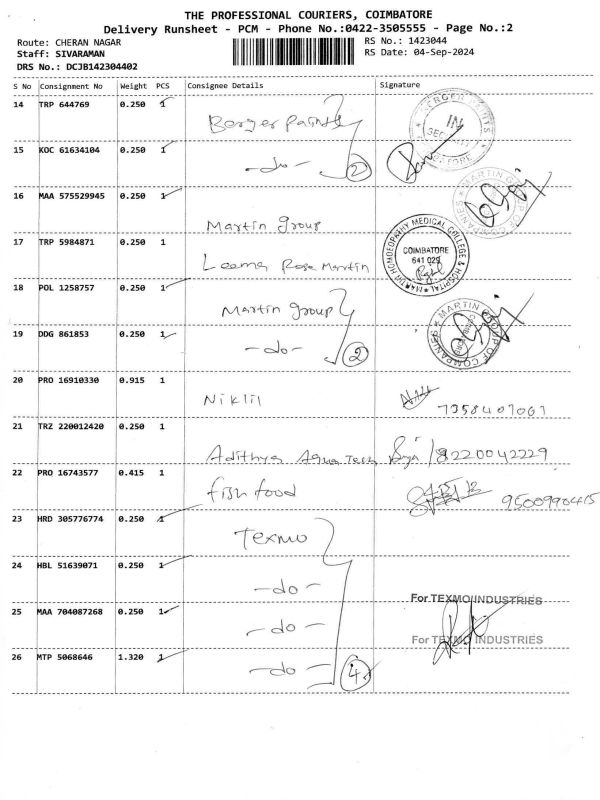 THE PROFESSIONAL COURIERS, COIMBATORE
Delivery Runsheet - PCM - Phone No.:0422-3505555 - Page No.:2
Route: CHERAN NAGAR
RS No.: 1423044
Staff: SIVARAMAN
RS Date: 04-Sep-2024
DRS No.: DCJB142304402
S No Consignment No Weight PCS Consignee Details Signature
14 TRP 644769 0.250 1 Berger Paints
BERGER PAINTS IN
15 KOC 61634104 0.250 1 -do- 2
16 MAA 575529945 0.250 1 Martin group
MARTIN GROUP OF COMPANIES
17 TRP 5984871 0.250 1 Leema Rose Martin
MARTIN HOMOEOPATHY MEDICAL COLLEGE & HOSPITAL
COIMBATORE
641 029
18 POL 1258757 0.250 1 Martin group
19 DDG 861853 0.250 1 -do- 2
MARTIN GROUP OF COMPANIES
20 PRO 16910330 0.915 1 Niklil
7358407061
21 TRZ 220012420 0.250 1 Adithya Aqua Tech
8220042229
22 PRO 16743577 0.415 1 fish food
9500990415
23 HRD 305776774 0.250 1 Texmo
24 HBL 51639071 0.250 1 -do-
For TEXMO INDUSTRIES
25 MAA 704087268 0.250 1 -do-
For TEXMO INDUSTRIES
26 MTP 5068646 1.320 1 -do- 4